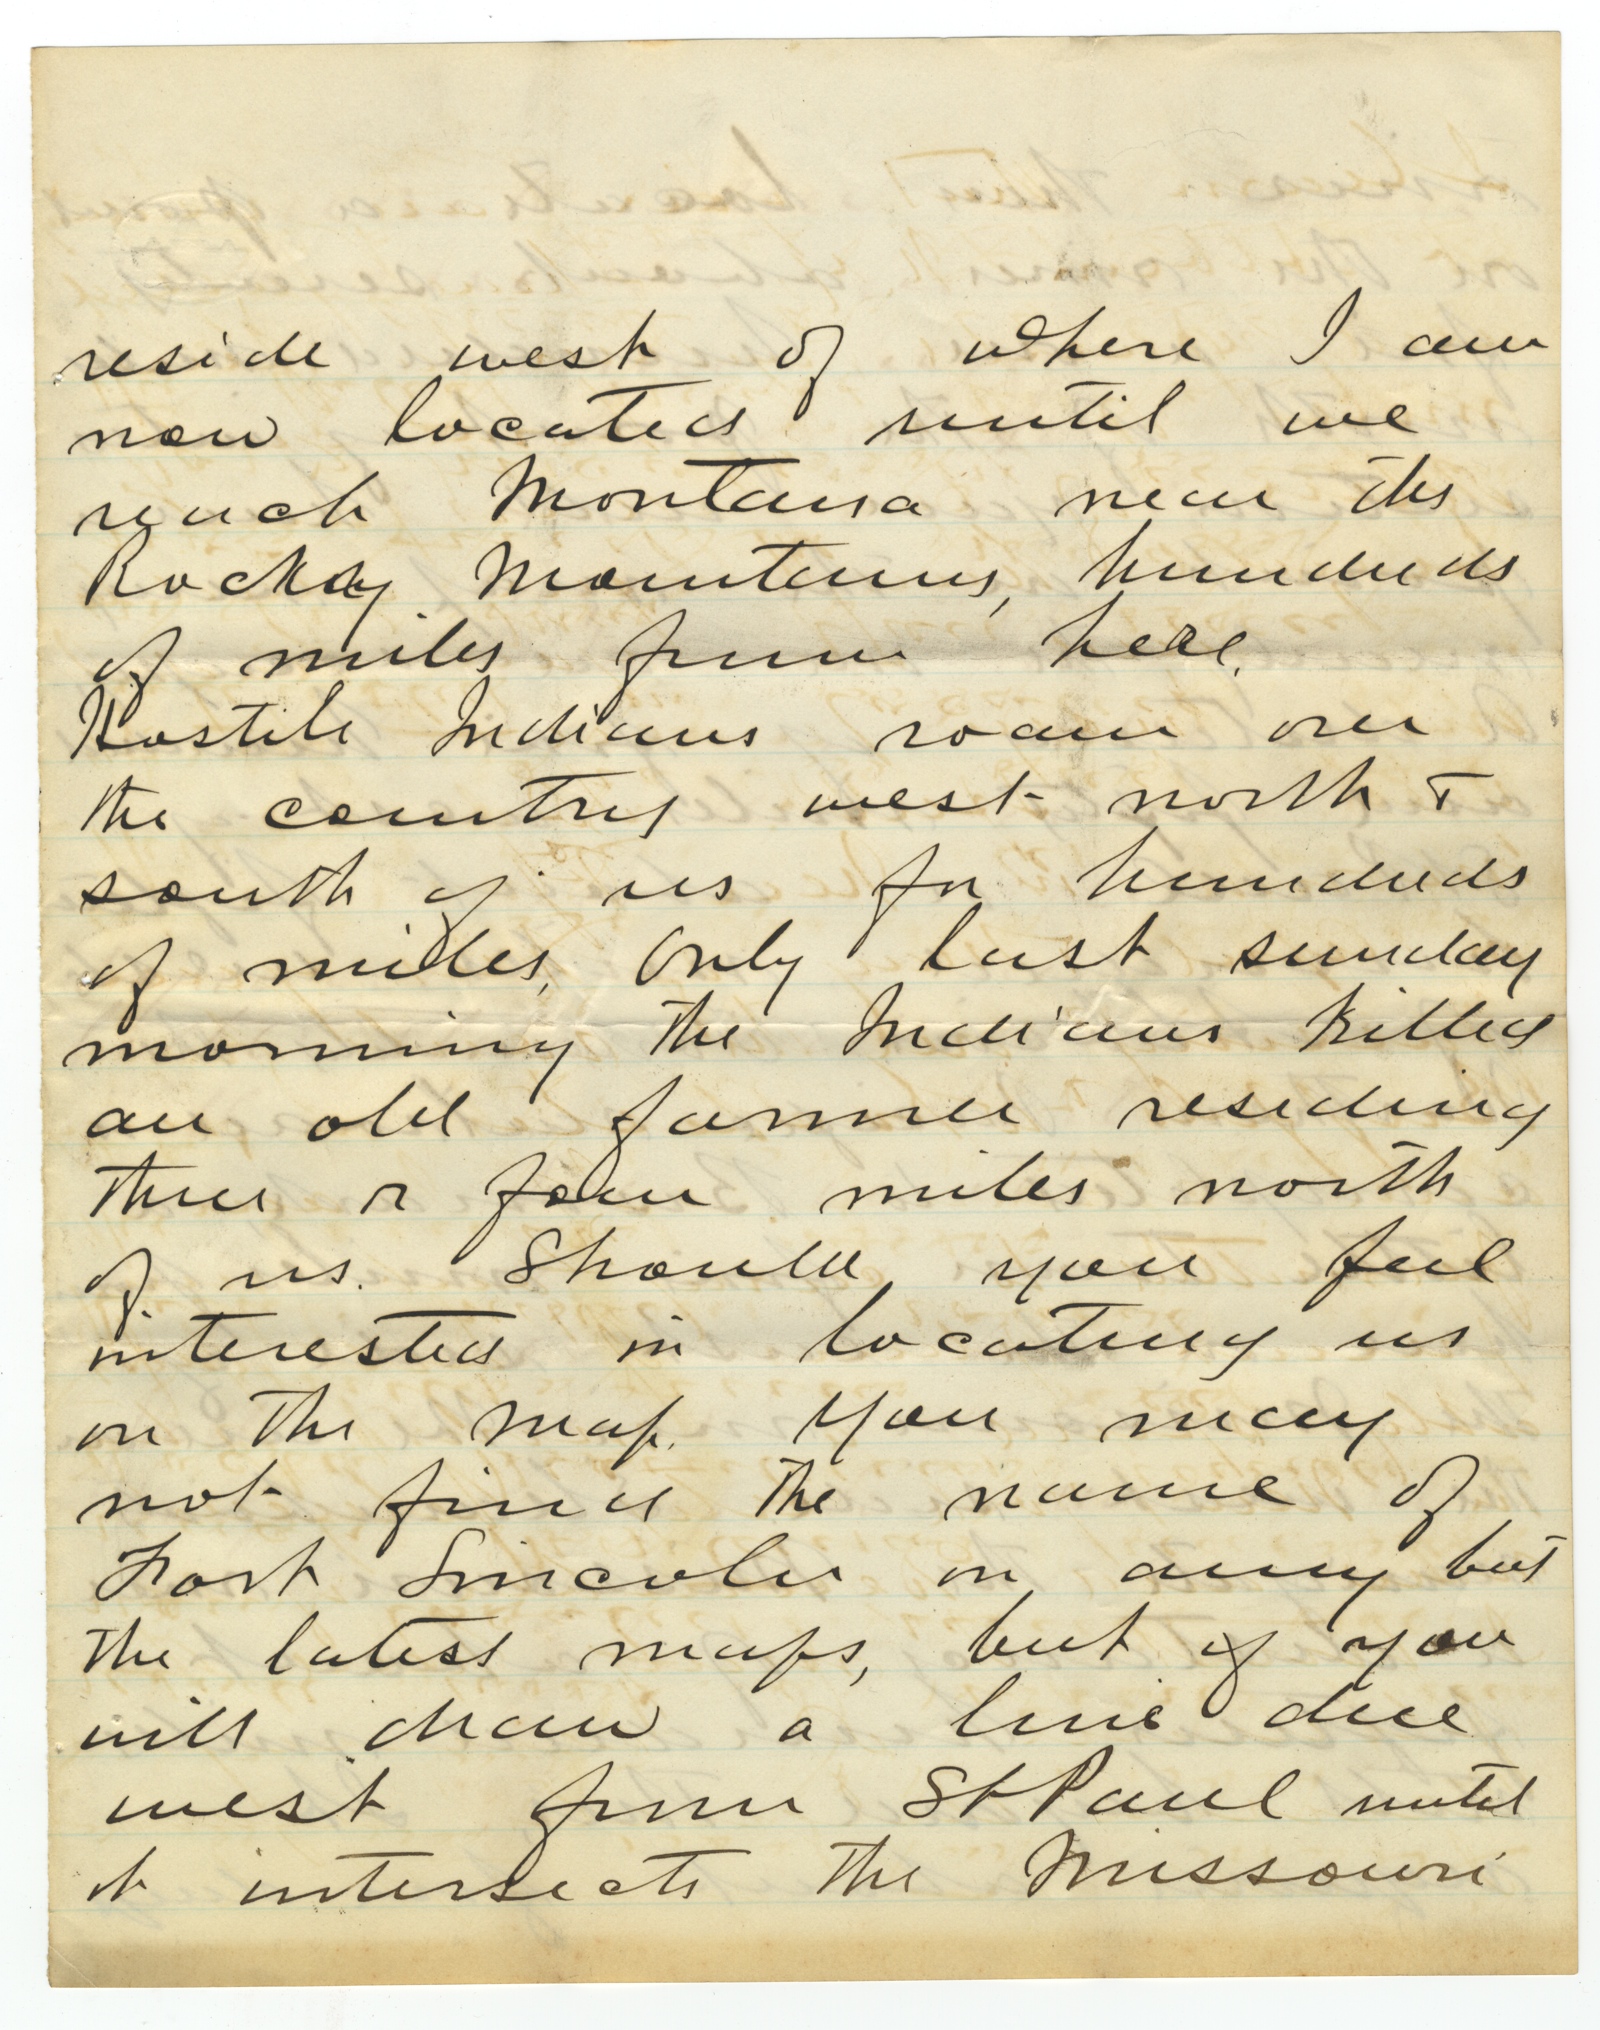 reside west of where I am
now located until we
reach Montana near the
Rocky Mountains, hundreds
of miles from here.
Hostile Indians roam over
the country west north &
south of us for hundreds
of miles, Only last sunday
morning the Indians killed
an old farmer residing
three or four miles north
of us. Should you feel
interested in locating us
on the map. You may
not find the name of
Fort Lincoln on any but
the latest maps, but if you
will draw a line due
west from St Paul until
it intersects the Missouri